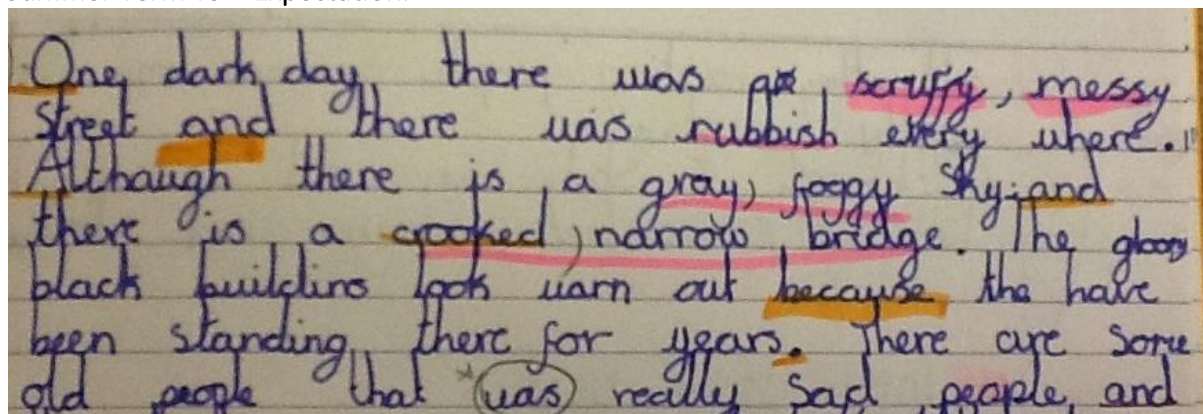 One dark day there was a scruffy, messy
street and there was rubbish every where.
Although there is a gray, foggy sky and
there is a crooked, narrow bridge. The gloomy
black buildins look warn out because the have
been standing there for years. There are some
old people that *was really sad people and